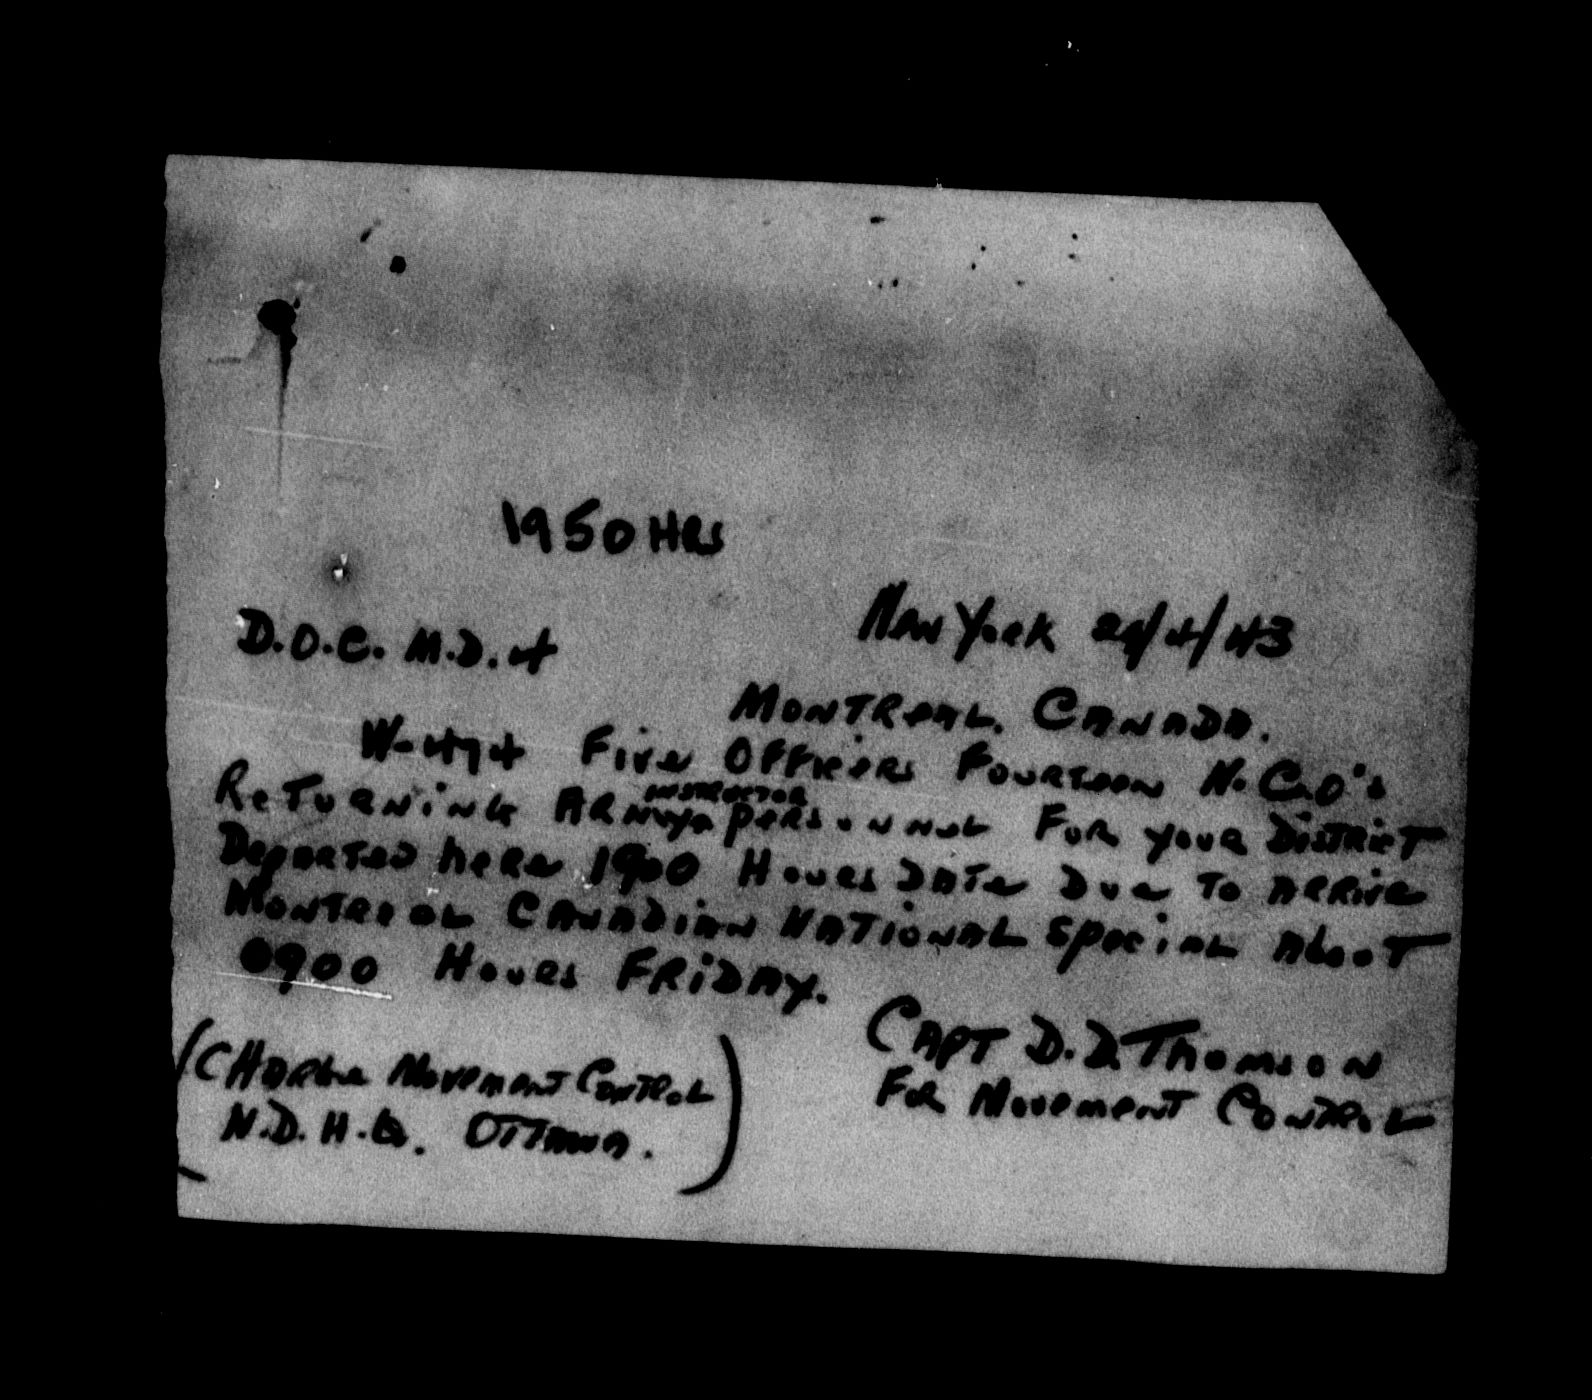 1950 HRS
New York 29/4/43
D.O.C. M.D. 4
Montreal, Canada.
W-494 Five Officers Fourteen N.C.O's
Returning Army instructor personnel For your District
Departed here 1900 Hours Date Due to arrive
Montreal Canadian National Special About
0900 Hours Friday.
Capt D.D. Thomson
For Movement Control
(Charge Movement Control
N.D.H.Q. Ottawa.)